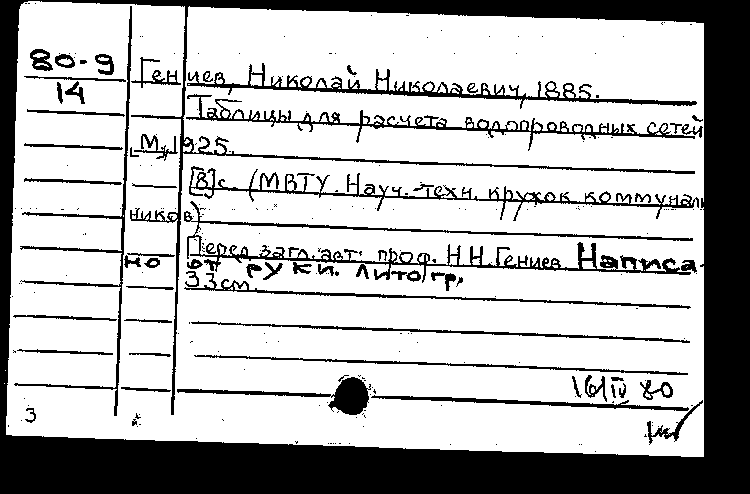 80-9
14
Гениев, Николай Николаевич, 1885.
Таблицы для расчета водопроводных сетей
М., 1925.
[8]с. (МВТУ. Науч.-техн. кружок коммуналь
ников)
Перед загл. авт: проф. Н.Н. Гениев. Написа-
но от руки. Литогр.
33см.
16/IV 80
3